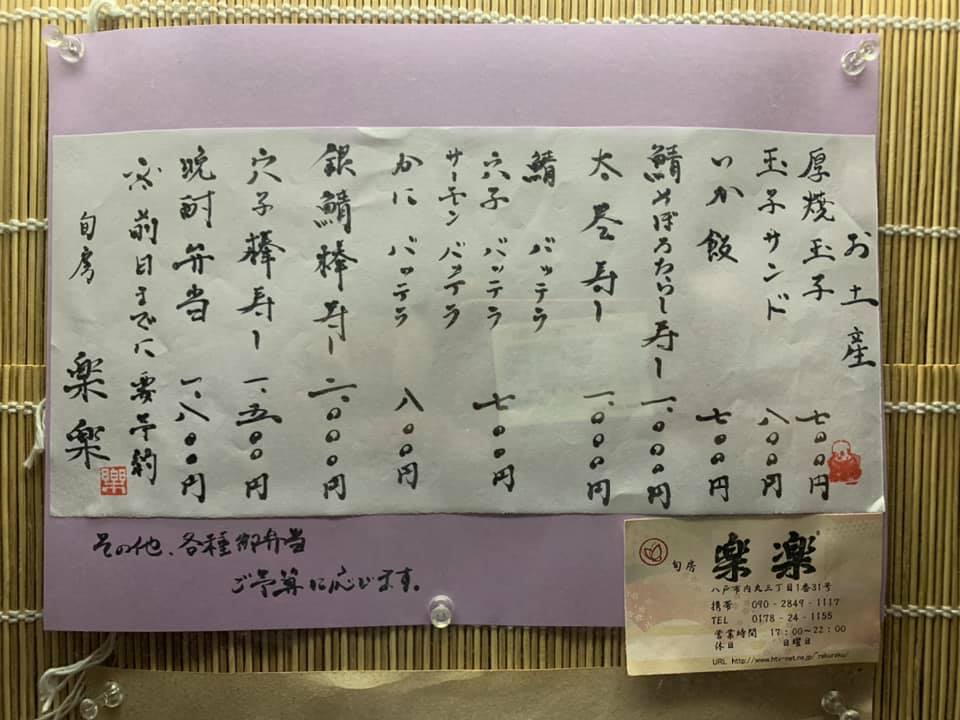 お土産
厚焼玉子 七〇〇円
玉子サンド 八〇〇円
いか飯 七〇〇円
鯖そぼろちらし寿し 一、〇〇〇円
太巻寿し 一、〇〇〇円
鯖 バッテラ
穴子 バッテラ 七〇〇円
サーモン バッテラ
かに バッテラ 八〇〇円
銀鯖棒寿し 二、〇〇〇円
穴子棒寿し 一、五〇〇円
晩酌弁当 一、八〇〇円
前日までに要予約
旬房 楽楽
その他、各種御弁当
ご予算に応じます。
旬房 楽楽
八戸市内丸三丁目1番31号
携帯 090-2849-1117
TEL 0178-24-1155
営業時間 17:00~22:00
休日 日曜日
URL http://www.htv-net.ne.jp/~rakuraku/